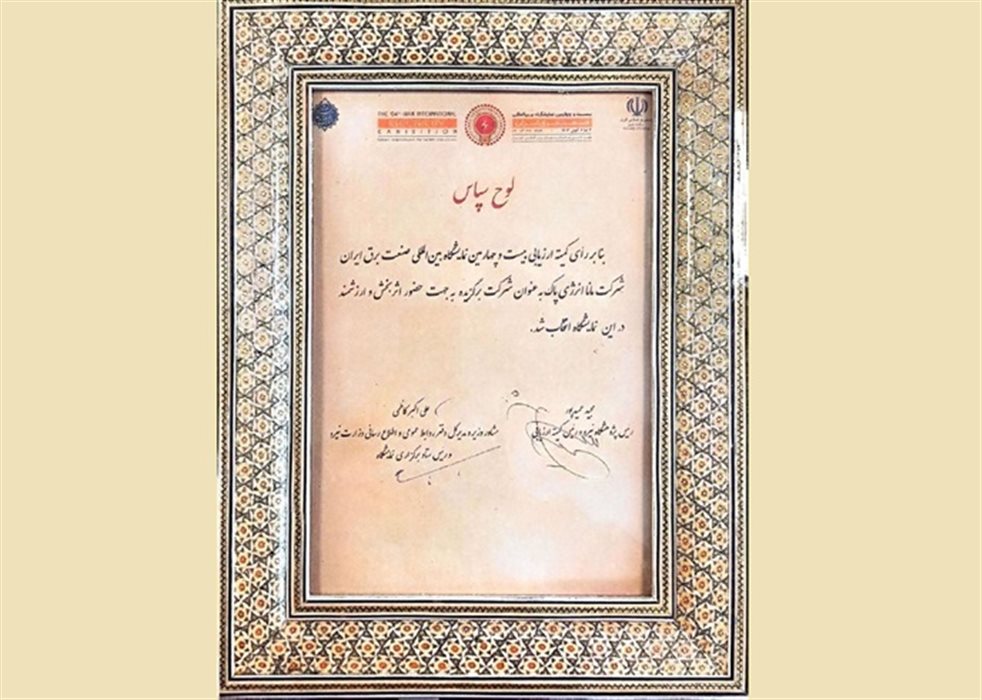 بیست و چهارمین نمایشگاه بین‌المللی
THE 24TH IRAN INTERNATIONAL
ELECTRICITY
EXHIBITION
لوح سپاس
بنا به رای کمیته ارزیابی بیست و چهارمین نمایشگاه بین المللی صنعت برق ایران
شرکت مانا انرژی پاک به عنوان شرکت برگزیده به جهت حضور اثربخش و ارزشمند
در این نمایشگاه انتخاب شد.
مجید عمیدپور
رییس پژوهشگاه نیرو و رییس کمیته ارزیابی
علی اکبر کاظمی
مشاور وزیر و مدیرکل دفتر روابط عمومی و اطلاع رسانی وزارت نیرو
و رییس ستاد برگزاری نمایشگاه